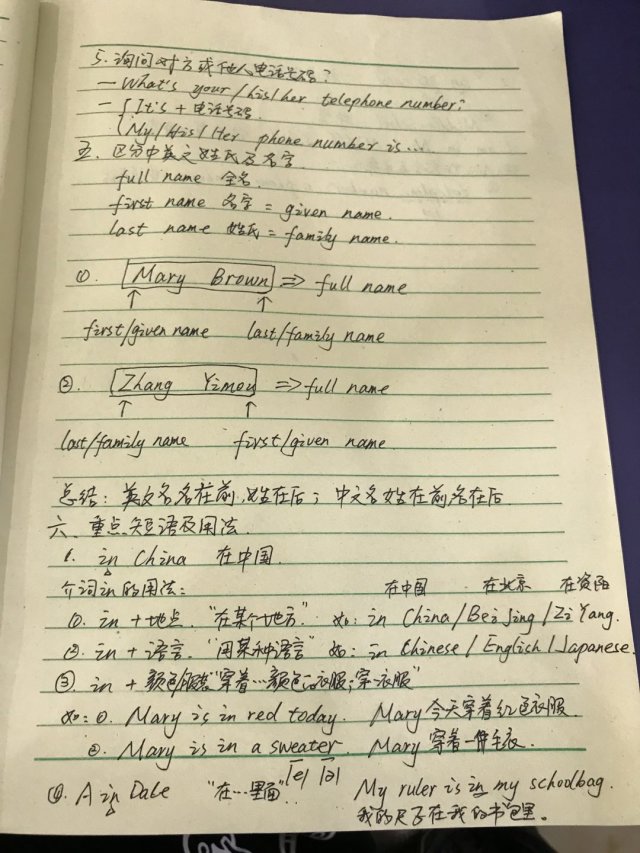 5. 询问对方或他人电话号码?
— What's your/his/her telephone number?
— { It's + 电话号码.
{ My/His/Her phone number is...
五. 区分中英文姓氏及名字
full name 全名.
first name 名字 = given name.
last name 姓氏 = family name.
①. Mary Brown => full name
↑ ↑
first/given name last/family name
②. Zhang Yimou => full name
↑ ↑
last/family name first/given name.
总结: 英文名名在前,姓在后; 中文名姓在前名在后.
六. 重点短语及用法.
1. in China 在中国.
介词in的用法: 在中国 在北京 在资阳
①. in + 地点. "在某个地方". 如: in China/BeiJing/ZiYang.
②. in + 语言. "用某种语言" 如: in Chinese/English/Japanese.
③. in + 颜色/服装 "穿着…颜色的衣服;穿…衣服"
如: ①. Mary is in red today. Mary今天穿着红色衣服.
②. Mary is in a sweater. Mary 穿着一件毛衣.
/e/ /ə/
④. A in Date "在…里面". My ruler is in my schoolbag.
我的尺子在我的书包里。